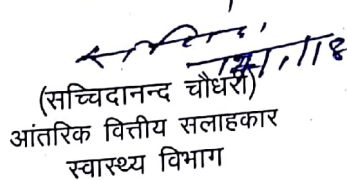 (सच्चिदानन्द चौधरी)
आंतरिक वित्तीय सलाहकार
स्वास्थ्य विभाग